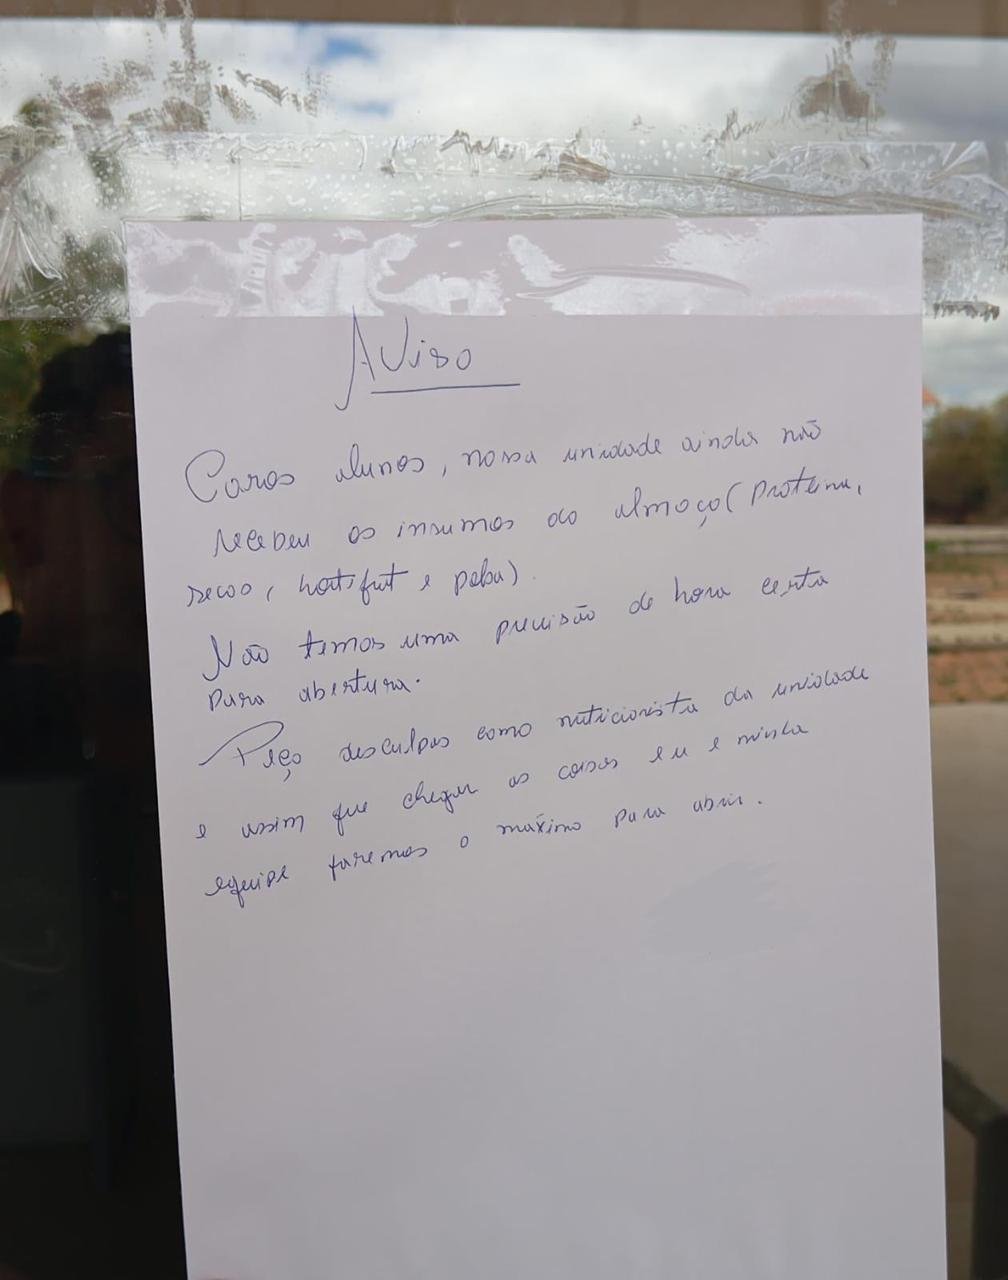 Aviso
Caros alunos, nossa unidade ainda não
recebeu os insumos do almoço (proteína,
secos, hortifrut e
Não temos uma previsão de hora certa
para abertura.
Peço desculpas como nutricionista da unidade
e assim que chegar as coisas eu e minha
equipe faremos o máximo para abrir.